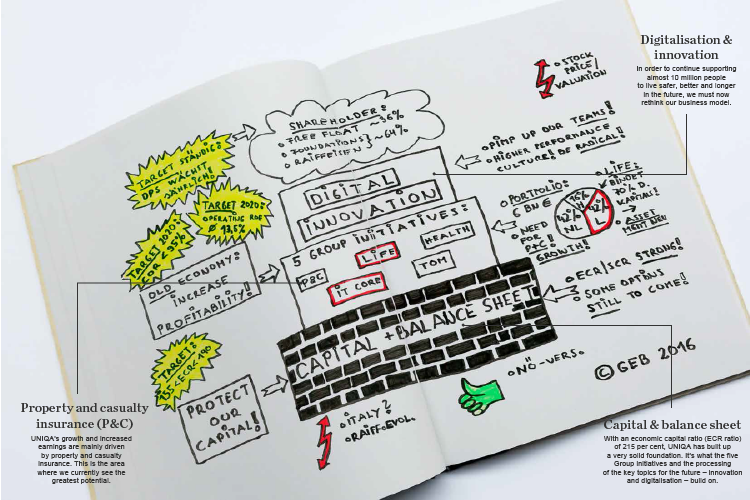 Digitalisation &
innovation
In order to continue supporting
almost 10 million people
to live safer, better and longer
in the future, we must now
rethink our business model.
STOCK
PRICE/
VALUATION
SHAREHOLDER:
FREE FLOAT ~36%
FOUNDATIONS
RAIFFEISEN } ~64%
TARGET STÄNDIG:
DPS WÄCHST
JÄHRLICH!
PIMP UP OUR TEAMS!
HIGHER PERFORMANCE
CULTURE! BE RADICAL!
DIGITAL
INNOVATION
TARGET 2020:
OPERATING ROE
Ø 13,5%
TARGET 2020:
COR < 95%
PORTFOLIO:
6 BN €
NEED
FOR
P&C!
GROWTH!
H
NL
L
LIFE:
BINDET
70% D.
KAPITALS!
ASSET
MGMT
5 GROUP INITIATIVES:
P&C
LIFE
HEALTH
IT CORE
TOM
OLD ECONOMY:
INCREASE
PROFITABILITY!
ECR/SCR STRONG!
SOME OPTIONS
STILL TO COME!
CAPITAL + BALANCE SHEET
TARGET:
155 < ECR < 190
PROTECT
OUR
CAPITAL!
NÖ-VERS.
© GEB 2016
ITALY?
RAIFF.EVOL.
Property and casualty
insurance (P&C)
UNIQA's growth and increased
earnings are mainly driven
by property and casualty
insurance. This is the area
where we currently see the
greatest potential.
Capital & balance sheet
With an economic capital ratio (ECR ratio)
of 215 per cent, UNIQA has built up
a very solid foundation. It's what the five
Group Initiatives and the processing
of the key topics for the future – innovation
and digitalisation – build on.